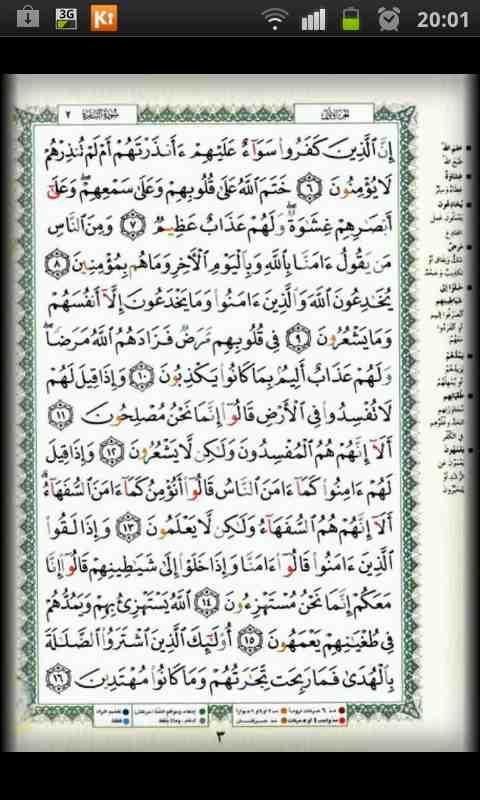 3G
K↑
20:01
سورة البقرة ٢
الجزء الأول
إِنَّ ٱلَّذِينَ كَفَرُوا۟ سَوَآءٌ عَلَيْهِمْ ءَأَنذَرْتَهُمْ أَمْ لَمْ تُنذِرْهُمْ
لَا يُؤْمِنُونَ ٦ خَتَمَ ٱللَّهُ عَلَىٰ قُلُوبِهِمْ وَعَلَىٰ سَمْعِهِمْ ۖ وَعَلَىٰٓ
أَبْصَٰرِهِمْ غِشَٰوَةٌ ۖ وَلَهُمْ عَذَابٌ عَظِيمٌ ٧ وَمِنَ ٱلنَّاسِ
مَن يَقُولُ ءَامَنَّا بِٱللَّهِ وَبِٱلْيَوْمِ ٱلْءَاخِرِ وَمَا هُم بِمُؤْمِنِينَ ٨
يُخَٰدِعُونَ ٱللَّهَ وَٱلَّذِينَ ءَامَنُوا۟ وَمَا يَخْدَعُونَ إِلَّآ أَنفُسَهُمْ
وَمَا يَشْعُرُونَ ٩ فِى قُلُوبِهِم مَّرَضٌ فَزَادَهُمُ ٱللَّهُ مَرَضًا ۖ
وَلَهُمْ عَذَابٌ أَلِيمٌۢ بِمَا كَانُوا۟ يَكْذِبُونَ ١٠ وَإِذَا قِيلَ لَهُمْ
لَا تُفْسِدُوا۟ فِى ٱلْأَرْضِ قَالُوٓا۟ إِنَّمَا نَحْنُ مُصْلِحُونَ ١١
أَلَآ إِنَّهُمْ هُمُ ٱلْمُفْسِدُونَ وَلَٰكِن لَّا يَشْعُرُونَ ١٢ وَإِذَا قِيلَ
لَهُمْ ءَامِنُوا۟ كَمَآ ءَامَنَ ٱلنَّاسُ قَالُوٓا۟ أَنُؤْمِنُ كَمَآ ءَامَنَ ٱلسُّفَهَآءُ ۗ
أَلَآ إِنَّهُمْ هُمُ ٱلسُّفَهَآءُ وَلَٰكِن لَّا يَعْلَمُونَ ١٣ وَإِذَا لَقُوا۟
ٱلَّذِينَ ءَامَنُوا۟ قَالُوٓا۟ ءَامَنَّا وَإِذَا خَلَوْا۟ إِلَىٰ شَيَٰطِينِهِمْ قَالُوٓا۟ إِنَّا
مَعَكُمْ إِنَّمَا نَحْنُ مُسْتَهْزِءُونَ ١٤ ٱللَّهُ يَسْتَهْزِئُ بِهِمْ وَيَمُدُّهُمْ
فِى طُغْيَٰنِهِمْ يَعْمَهُونَ ١٥ أُو۟لَٰٓئِكَ ٱلَّذِينَ ٱشْتَرَوُا۟ ٱلضَّلَٰلَةَ
بِٱلْهُدَىٰ فَمَا رَبِحَت تِّجَٰرَتُهُمْ وَمَا كَانُوا۟ مُهْتَدِينَ ١٦
٣